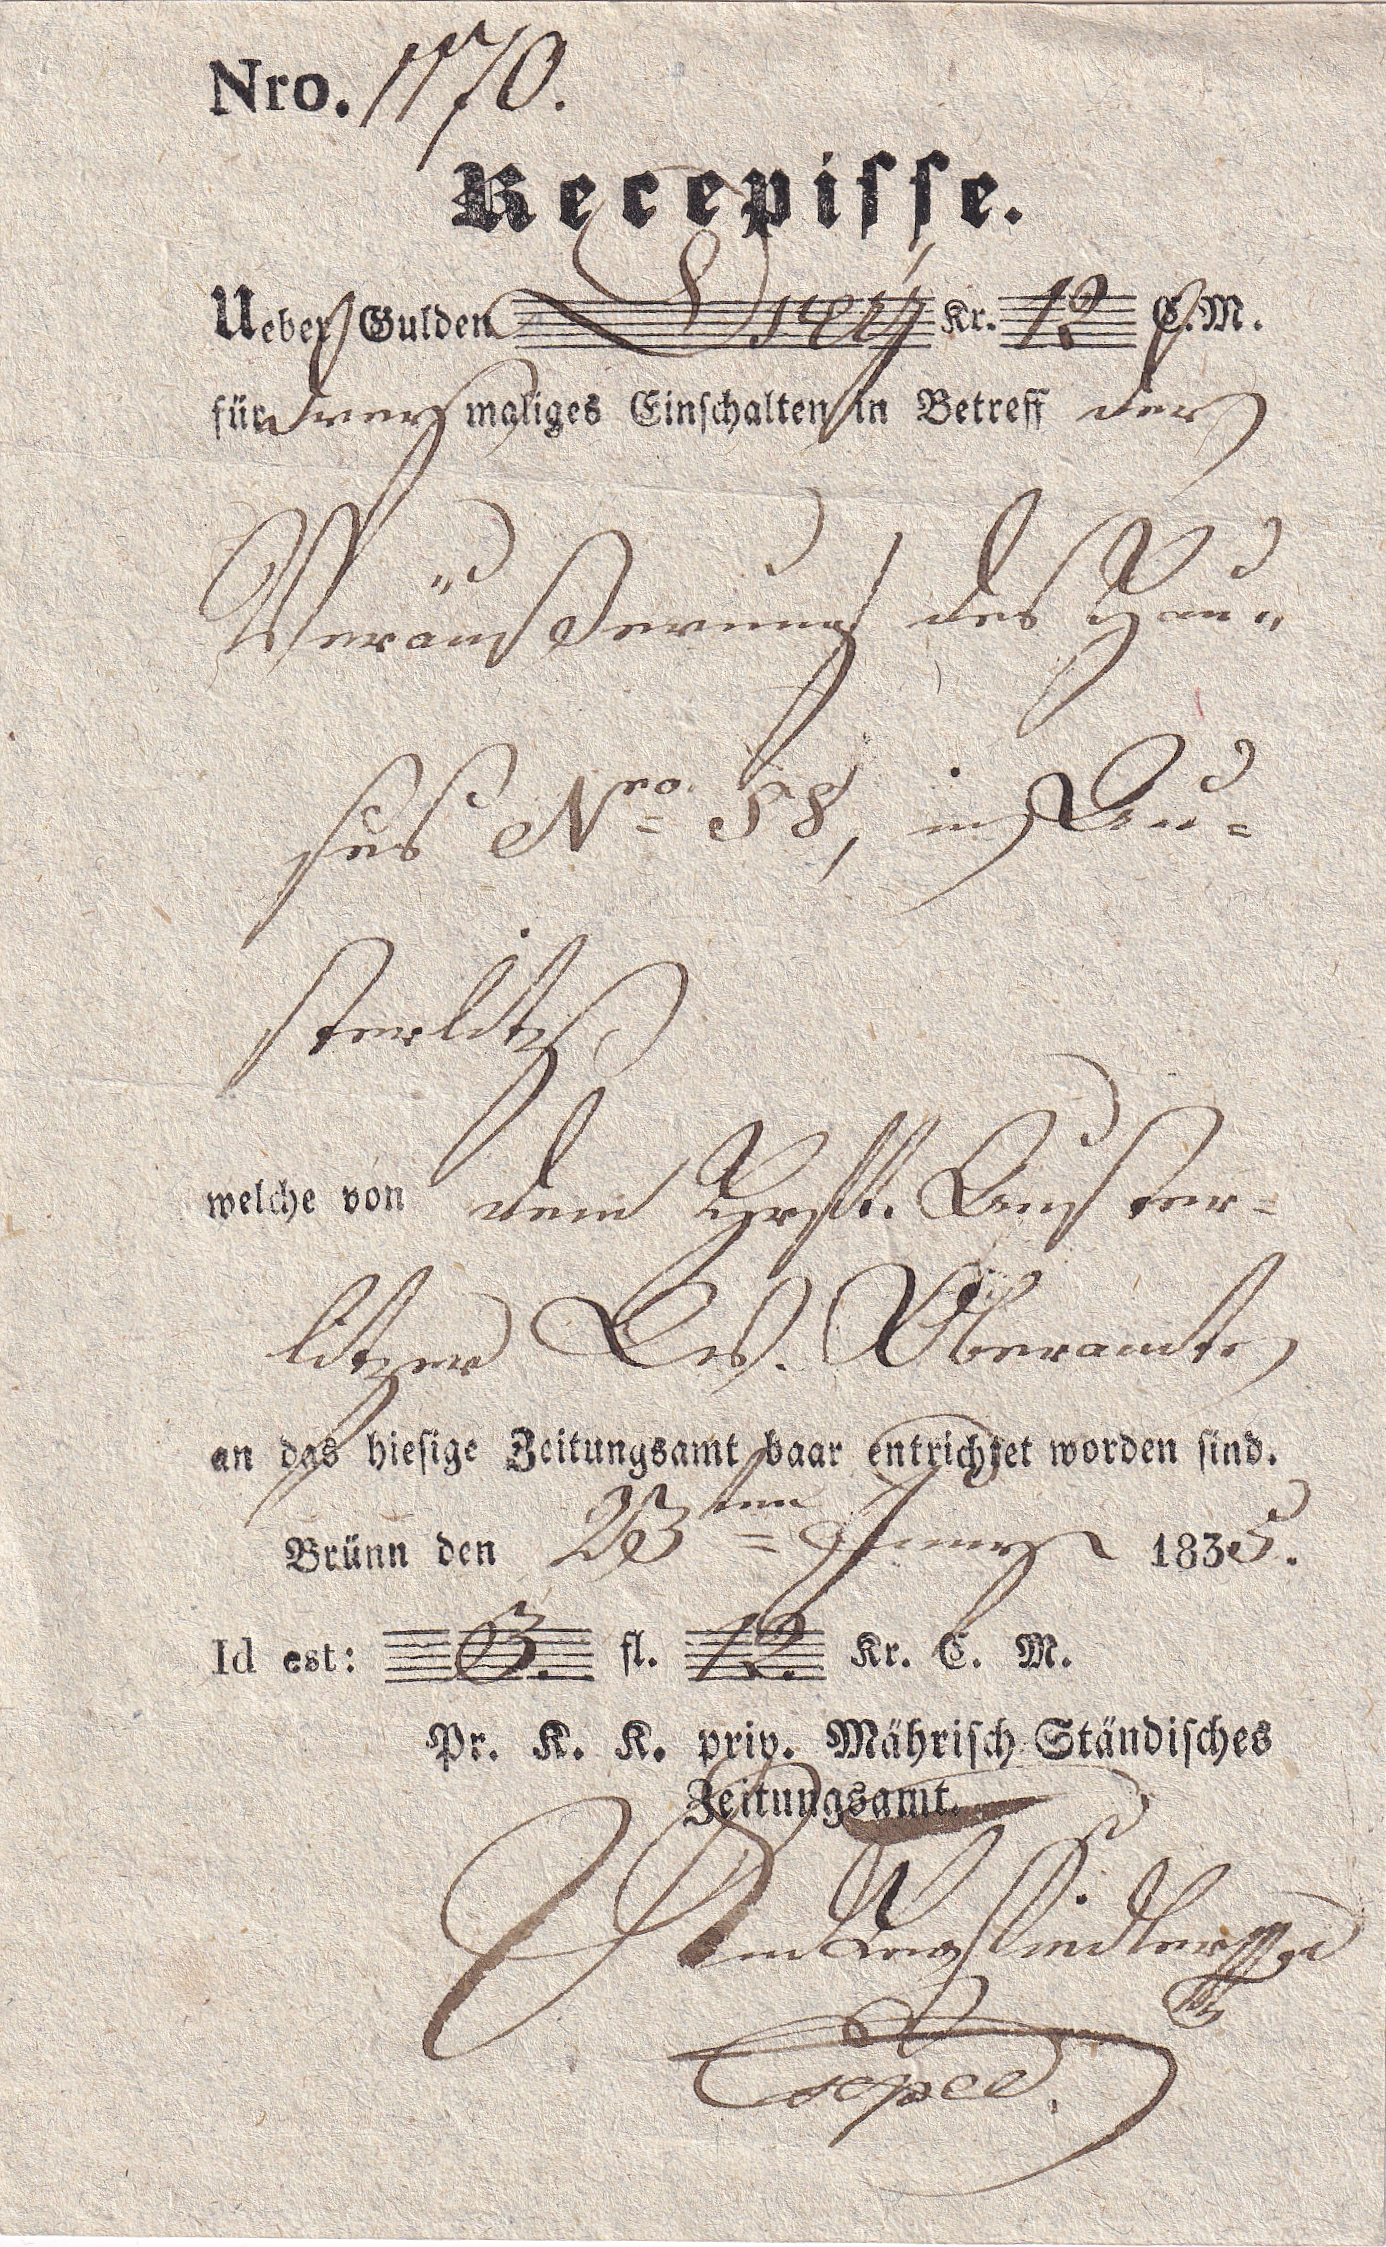 Nro. 1170.
Recepisse.
Ueber Gulden Drey Kr. 12 C. M.
für drey maliges Einschalten in Betreff der
Veräußerung des Hau„
ses Nro 58, in Au=
sterlitz
welche von dem Hrschftl. Auster=
litzer Oberamte
an das hiesige Zeitungsamt baar entrichtet worden sind.
Brünn den 23ten 1835.
Id est: 3. fl. 12. Kr. C. M.
Pr. K. K. priv. Mährisch Ständisches
Zeitungsamt.